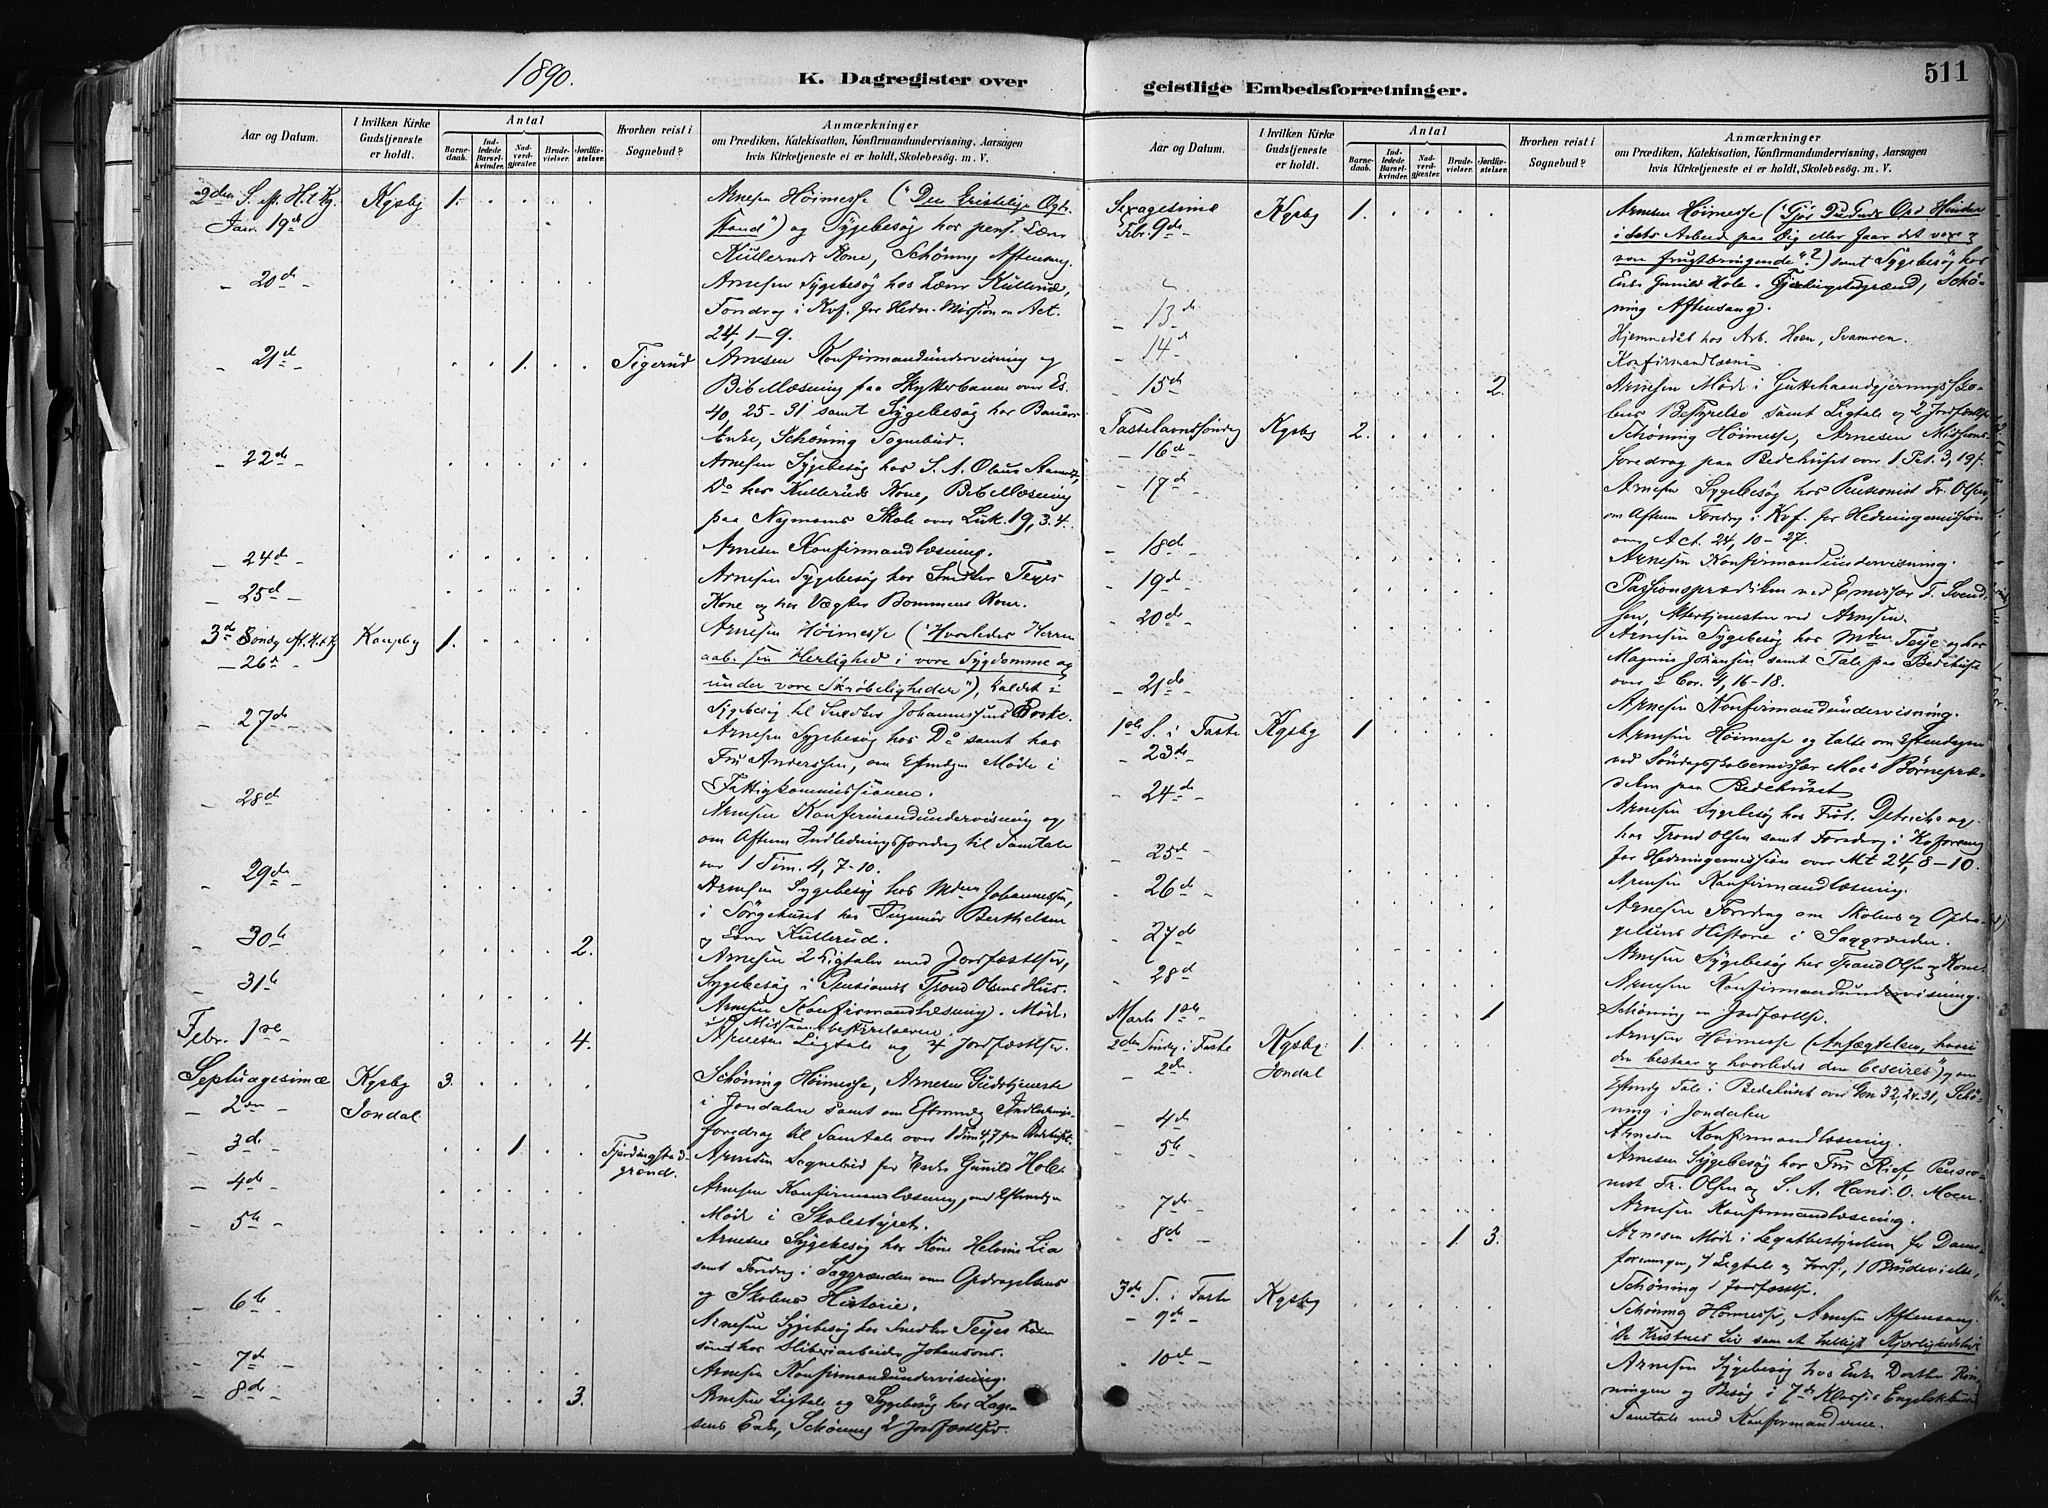 1890.
K. Dagregister over
geistlige Embedsforretninger.
511
Aar og Datum.
I hvilken Kirke Gudstjeneste er holdt.
Antal
Barnedaab.
Indledede Barselkvinder.
Nadverdgjæster.
Brudevielser.
Jordfæstelser.
Hvorhen reist i Sognebud?
Anmærkninger
om Prædiken, Katekisation, Konfirmandundervisning, Aarsagen
hvis Kirketjeneste ei er holdt, Skolebesøg. m. V.
2den S. ef. H.t.K. Kgsby 1. Arnesen Høimesse ("Den
Jan. 19de og Sygebesøg hos pens. Lærer
Kullerud Kone, Schøning Aftensang.
20de Arnesen Sygebesøg hos Lærer Kullerud,
Foredrag i Kvf. for Hedn. Mission over Act.
24, 1-9.
21de 1. Tigerud Arnesen Konfirmandundervisning og
Bibellæsning paa Skytterbanen over Es.
40, 25-31 samt Sygebesøg hos
Enke, Schøning Sognebud.
22de Arnesen Sygebesøg hos S. A. Olaus
Do hos Kulleruds Kone, Bibellæsning
paa Nymoens Skole over Luk. 19, 3.4.
24de Arnesen Konfirmandlæsning.
25de Arnesen Sygebesøg hos Snedker Teyes
Kone og hos Vægter Bommens Kone.
3de Søndg. ef. H.t.K. Kongsby 1. Arnesen Høimesse ("Hvorledes Herren
26de aab. sin Herlighed i vore Sygdomme og
under vore Skrøbeligheder"), kaldet i
Sygebesøg til Snedker Johannessens
27de Arnesen Sygebesøg hos Do samt hos
Fru Anderssen, om Eftmdgn Møde i
Fattigkommissionen.
28de Arnesen Konfirmandundervisning og
om Aftenen Indledningsforedrag til Samtale
over 1 Tim. 4, 7-10.
29de Arnesen Sygebesøg hos Mdm Johannessen,
i Sørgehuset hos Berthelsen
og Lærer Kullerud.
30te 2. Arnesen 2 Ligtaler med Jordfæstelser,
Sygebesøg i Pensionist Trond Olsens Hus.
31te Arnesen Konfirmandlæsning. Møde
i Missionsbestyrelsen.
Febr. 1ste 4. Arnesen Ligtale og 4 Jordfæstelser.
Septuagesimæ Kgsby 3. Schøning Høimesse, Arnesen Gudstjeneste
2den Jondal i Jondalen samt om Eftermdg Indlednings-
foredrag til Samtale over 1 Tim 4,7 paa Bedehuset.
3de 1. Fjerdingstad- Arnesen Sognebud for Enke Gunild Hole.
grænd.
4de Arnesen Konfirmandlæsning, om Eftermdgn
Møde i Skolestyret.
5te Arnesen Sygebesøg hos Kone Helvine Lia
samt Foredrag i Saggrænden om Opdragelsens
og Skolens Historie.
6te Arnesen Sygebesøg hos Snedker Teyes Kone
samt hos Sliberiarbeider Johansons.
7de Arnesen Konfirmandundervisning.
8de 3. Arnesen Ligtale og Sygebesøg hos
Enke, Schøning 2 Jordfæstelser.
Aar og Datum.
I hvilken Kirke Gudstjeneste er holdt.
Antal
Barnedaab.
Indledede Barselkvinder.
Nadverdgjæster.
Brudevielser.
Jordfæstelser.
Hvorhen reist i Sognebud?
Anmærkninger
om Prædiken, Katekisation, Konfirmandundervisning, Aarsagen
hvis Kirketjeneste ei er holdt, Skolebesøg. m. V.
Sexagesimæ Kgsby 1. Arnesen Høimesse ("Gjør Du Guds Ord Hinder
Febr. 9de i dets Arbeid paa Dig eller faar det voxe og
frugtbringende"?) samt Sygebesøg hos
Enke Gunild Hole i Schø-
ning Aftensang.
13de Hjemmedaab hos Arb. Hoen, Svamoen.
14de Konfirmandlæsning
15de 2. Arnesen Møde i Guttehaandgjerningssko-
lens Bestyrelse samt Ligtale og 2 Jordfæstelser
Fastelavnssøndag Kgsby 2. Schøning Høimesse, Arnesen Missions-
16de foredrag paa Bedehuset over 1 Pet. 3, 19f.
17de Arnesen Sygebesøg hos Pensionist Fr. Olsen,
om Aftenen Foredrag i Kvf. for Hedningemission
over Act. 24, 10-27.
18de Arnesen Konfirmandundervisning.
19de Passionsprædiken ved Emissær F. Svend-
sen, Altertjenesten ved Arnesen.
20de Arnesen Sygebesøg hos Mdm Teye og hos
Magnus Johansen samt Tale paa Bedehuset
over 2 Cor. 4, 16-18.
21de Arnesen Konfirmandundervisning.
1ste S. i Faste Kgsby 1 Arnesen Høimesse og talte om Eftmdagen
23de ved Søndagsskoleemissær Moe's Børnepræ-
diken paa Bedehuset
24de Arnesen Sygebesøg hos Frøk. Detrichs og
hos Trond Olsen samt Foredrag i Kvforening
for Hedningemission over Mt 24, 8-10.
25de Arnesen Konfirmandlæsning.
26de Arnesen Foredrag om Skolens og Opdra-
gelsens Historie i Saggrænden.
27de Arnesen Sygebesøg hos Trond Olsen og Kone.
28de Arnesen Konfirmandundervisning.
Marts 1ste 1 Schøning en Jordfæstelse.
2den Søndg i Faste Kgsby 1. Arnesen Høimesse (Anfægtelsen, hvori
2de Jondal den bestaar og hvorledes den beseires") og om
Eftmdg Tale i Bedehuset over Gen 32, 24-31, Schø-
ning i Jondalen
4de Arnesen Konfirmandlæsning.
5te Arnesen Sygebesøg hos Fru Rief, Pensio-
nist Fr. Olsen og S. A. Hans O. Moen.
7de Arnesen Konfirmandlæsning.
8de 1. 3. Arnesen Møde i Legatbestyrelsen for Dame-
foreningen, 1 Ligtale og Jordf., 1 Brudevielse,
Schøning 1 Jordfæstelse.
3de S. i Faste Kgsby Schøning Høimesse, Arnesen Aftensang.
9de De Kristnes Liv som et helligt Kjærlighedsliv
10de Arnesen Sygebesøg hos Enke Dorthe
og Besøg i 7de Klasses Engelskkursus
Samtale med Konfirmanderne.